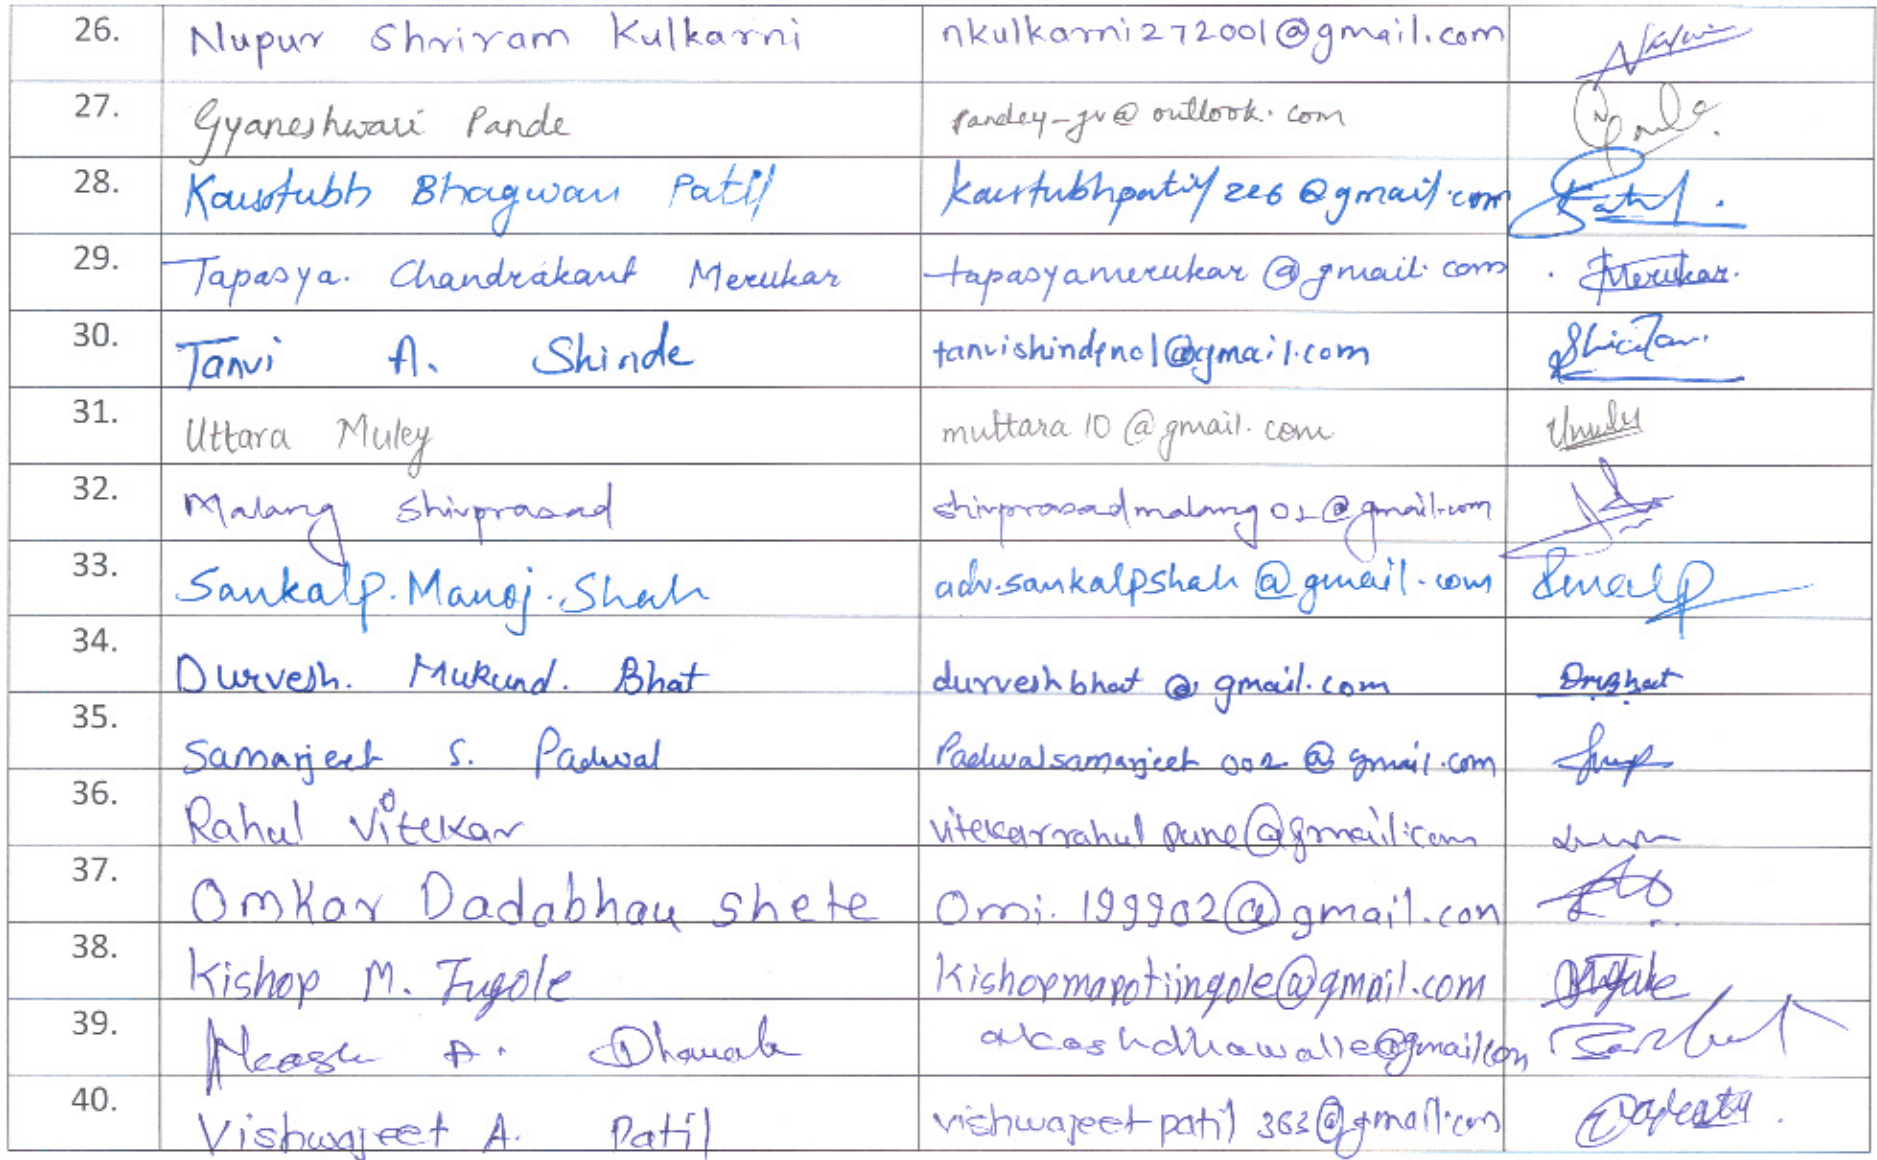 26. Nupur Shriram Kulkarni nkulkarni272001@gmail.com
27. Gyaneshwari Pande pandey-gv@outlook.com
28. Kaustubh Bhagwan Patil kaustubhpatil226@gmail.com Patil.
29. Tapasya. Chandrakant Merukar tapasyamerukar@gmail.com Merukar.
30. Tanvi A. Shinde @gmail.com
31. Uttara Muley muttara10@gmail.com
32. Malang Shivprasad shivprasadmalang01@gmail.com
33. Sankalp. Manoj. Shah adv.sankalpshah@gmail.com
34. Durvesh. Mukund. Bhat durveshbhat@gmail.com DMBhat
35. Samarjeet S. Padwal Padwalsamarjeet002@gmail.com
36. Rahul Vitekar vitekarrahulpune@gmail.com
37. Omkar Dadabhau shete Omi.199902@gmail.con
38. Kishor M. Ingole Kishormarotiingole@gmail.com
39. Akash A. akashdhawalle@gmail.com
40. Vishwajeet A. Patil vishwajeetpatil363@gmail.com